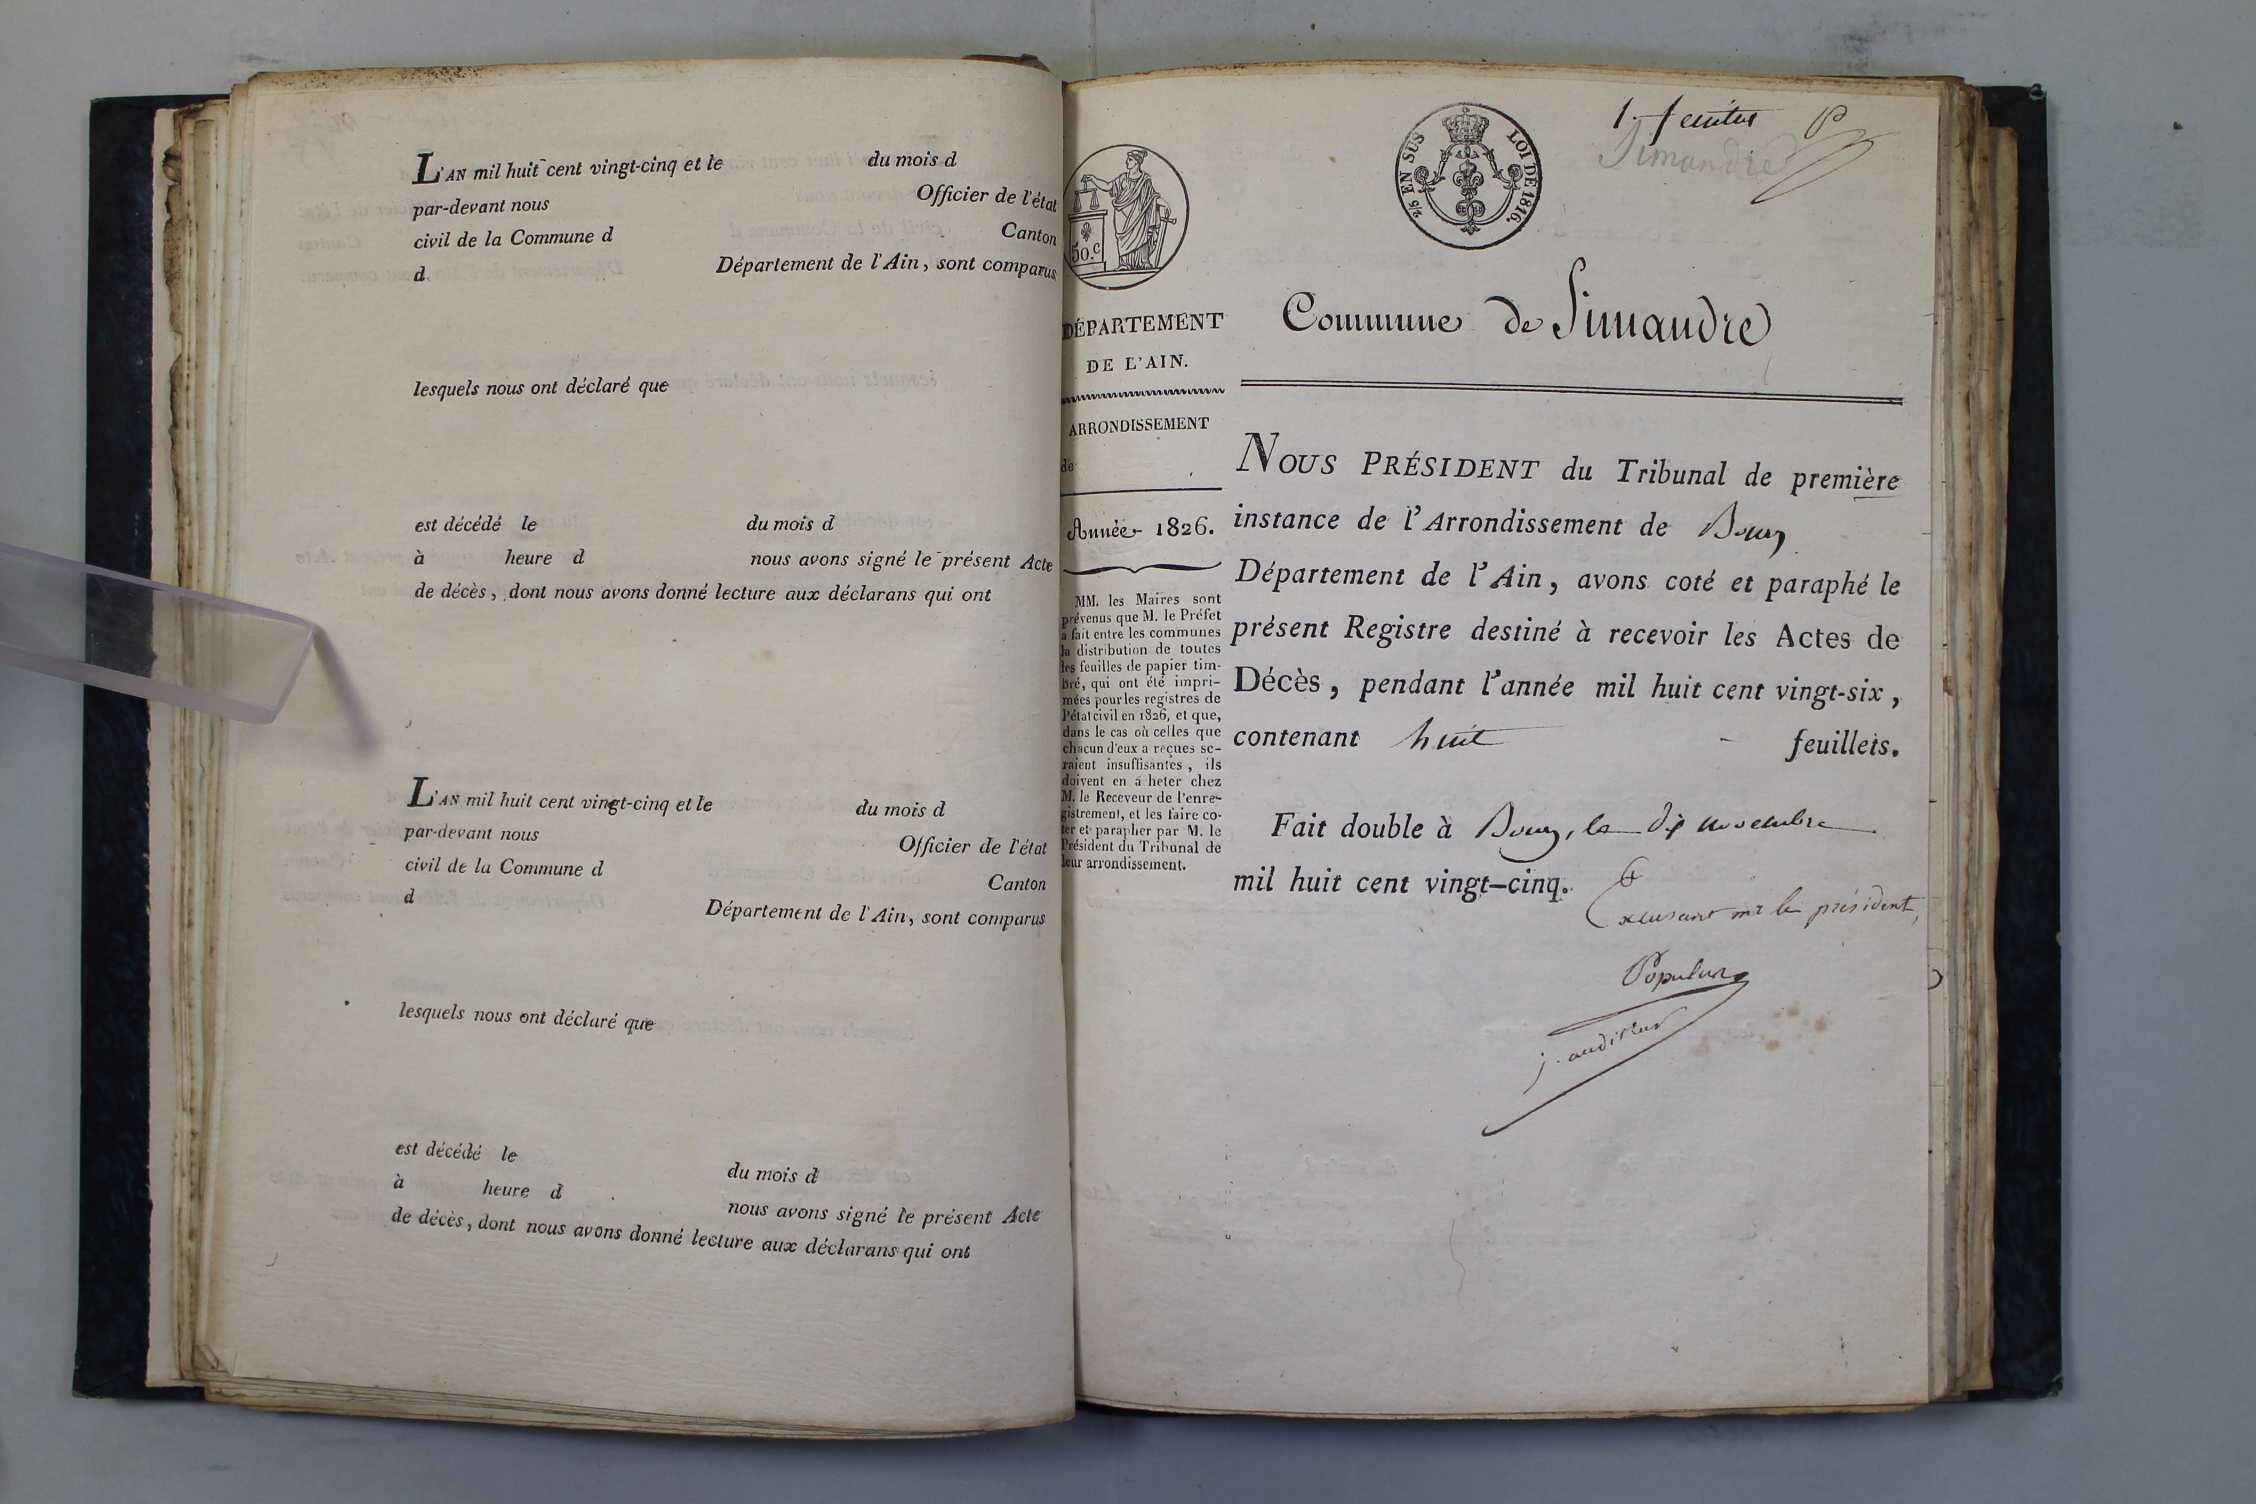 L'AN mil huit cent vingt-cinq et le du mois d
par-devant nous Officier de l'état
civil de la Commune d Canton
d Département de l'Ain, sont comparus
lesquels nous ont déclaré que
est décédé le du mois d
à heure d nous avons signé le présent Acte
de décès, dont nous avons donné lecture aux déclarans qui ont
L'AN mil huit cent vingt-cinq et le du mois d
par-devant nous Officier de l'état
civil de la Commune d Canton
d Département de l'Ain, sont comparus
lesquels nous ont déclaré que
est décédé le du mois d
à heure d nous avons signé le présent Acte
de décès, dont nous avons donné lecture aux déclarans qui ont
50.c
2/5 EN SUS LOI DE 1816.
Simandre
DÉPARTEMENT
DE L'AIN.
ARRONDISSEMENT
de
Année 1826.
MM. les Maires sont
prévenus que M. le Préfet
a fait entre les communes
la distribution de toutes
les feuilles de papier tim-
bré, qui ont été impri-
mées pour les registres de
l'état civil en 1826, et que,
dans le cas où celles que
chacun d'eux a reçues se-
raient insuffisantes, ils
doivent en a heter chez
M. le Receveur de l'enre-
gistrement, et les faire co-
ter et parapher par M. le
Président du Tribunal de
leur arrondissement.
Commune de Simandre
NOUS PRÉSIDENT du Tribunal de première
instance de l'Arrondissement de Bourg
Département de l'Ain, avons coté et paraphé le
présent Registre destiné à recevoir les Actes de
Décès, pendant l'année mil huit cent vingt-six,
contenant huit feuillets.
Fait double à Bourg, le dix novembre
mil huit cent vingt-cinq.
Excusant mr le président,
Populus
j. auditeur